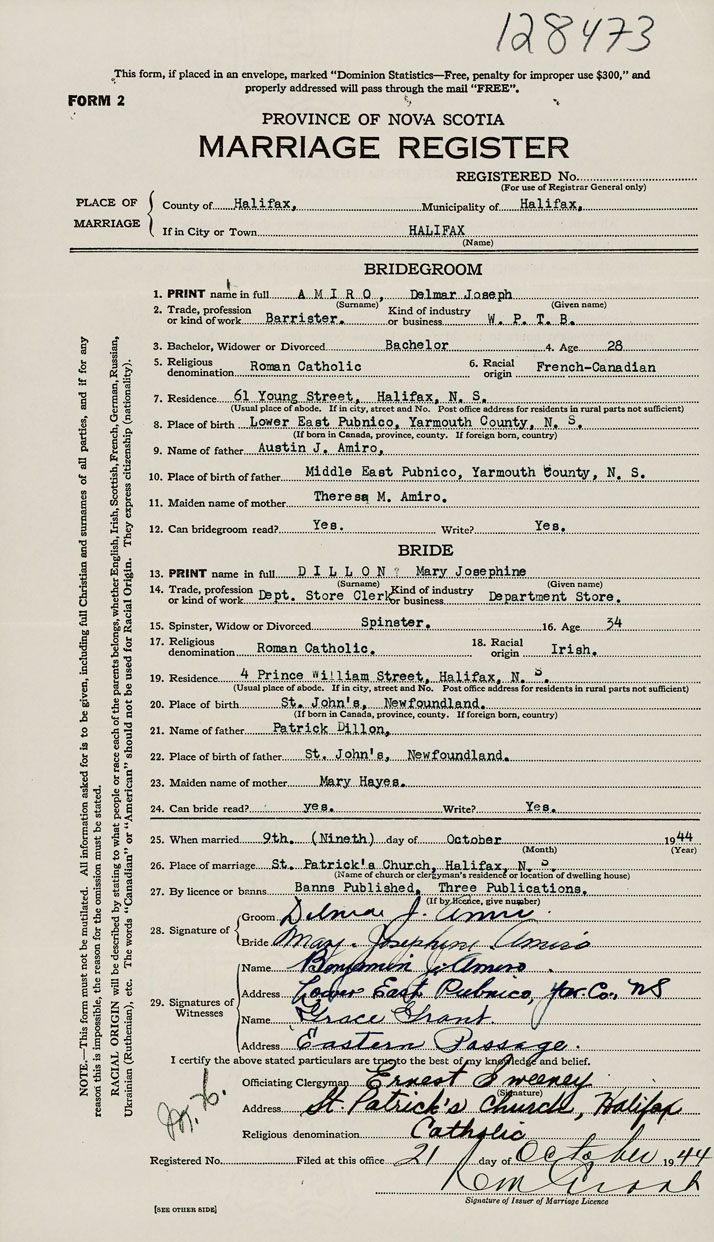 128473
This form, if placed in an envelope, marked "Dominion Statistics—Free, penalty for improper use $300," and
properly addressed will pass through the mail "FREE".
FORM 2
PROVINCE OF NOVA SCOTIA
MARRIAGE REGISTER
REGISTERED No.
(For use of Registrar General only)
PLACE OF MARRIAGE
County of Halifax, Municipality of Halifax,
If in City or Town HALIFAX
(Name)
BRIDEGROOM
1. PRINT name in full A M I R O, Delmar Joseph
(Surname) (Given name)
2. Trade, profession or kind of work Barrister. Kind of industry or business W. P. T. B.
3. Bachelor, Widower or Divorced Bachelor 4. Age 28
5. Religious denomination Roman Catholic 6. Racial origin French-Canadian
7. Residence 61 Young Street, Halifax, N. S.
(Usual place of abode. If in city, street and No. Post office address for residents in rural parts not sufficient)
8. Place of birth Lower East Pubnico, Yarmouth County, N. S.
(If born in Canada, province, county. If foreign born, country)
9. Name of father Austin J. Amiro,
10. Place of birth of father Middle East Pubnico, Yarmouth County, N. S.
11. Maiden name of mother Theresa M. Amiro.
12. Can bridegroom read? Yes. Write? Yes.
BRIDE
13. PRINT name in full D I L L O N ? Mary Josephine
(Surname) (Given name)
14. Trade, profession or kind of work Dept. Store Clerk Kind of industry or business Department Store.
15. Spinster, Widow or Divorced Spinster. 16. Age 34
17. Religious denomination Roman Catholic. 18. Racial origin Irish.
19. Residence 4 Prince William Street, Halifax, N. S.
(Usual place of abode. If in city, street and No. Post office address for residents in rural parts not sufficient)
20. Place of birth St. John's, Newfoundland.
(If born in Canada, province, county. If foreign born, country)
21. Name of father Patrick Dillon,
22. Place of birth of father St. John's, Newfoundland.
23. Maiden name of mother Mary Hayes.
24. Can bride read? yes. Write? Yes.
25. When married 9th. (Nineth) day of October 1944
(Month) (Year)
26. Place of marriage St. Patrick's Church, Halifax, N. S.
(Name of church or clergyman's residence or location of dwelling house)
27. By licence or banns Banns Published, Three Publications.
(If by licence, give number)
28. Signature of
Groom Delmar J. Amiro
Bride Mary Josephine Amiro
29. Signatures of Witnesses
Name Benjamin J. Amiro.
Address Lower East Pubnico, Yar. Co., NS
Name Grace Grant.
Address Eastern Passage.
I certify the above stated particulars are true to the best of my knowledge and belief.
Officiating Clergyman Ernest Sweeney
(Signature)
Address St. Patrick's Church, Halifax
Religious denomination Catholic
Registered No. Filed at this office 21 day of October 1944
Signature of Issuer of Marriage Licence
[SEE OTHER SIDE]
NOTE.—This form must not be mutilated. All information asked for is to be given, including full Christian and surnames of all parties, and if for any
reason this is impossible, the reason for the omission must be stated.
RACIAL ORIGIN will be described by stating to what people or race each of the parents belongs, whether English, Irish, Scottish, French, German, Russian,
Ukrainian (Ruthenian), etc. The words "Canadian" or "American" should not be used for Racial Origin. They express citizenship (nationality).